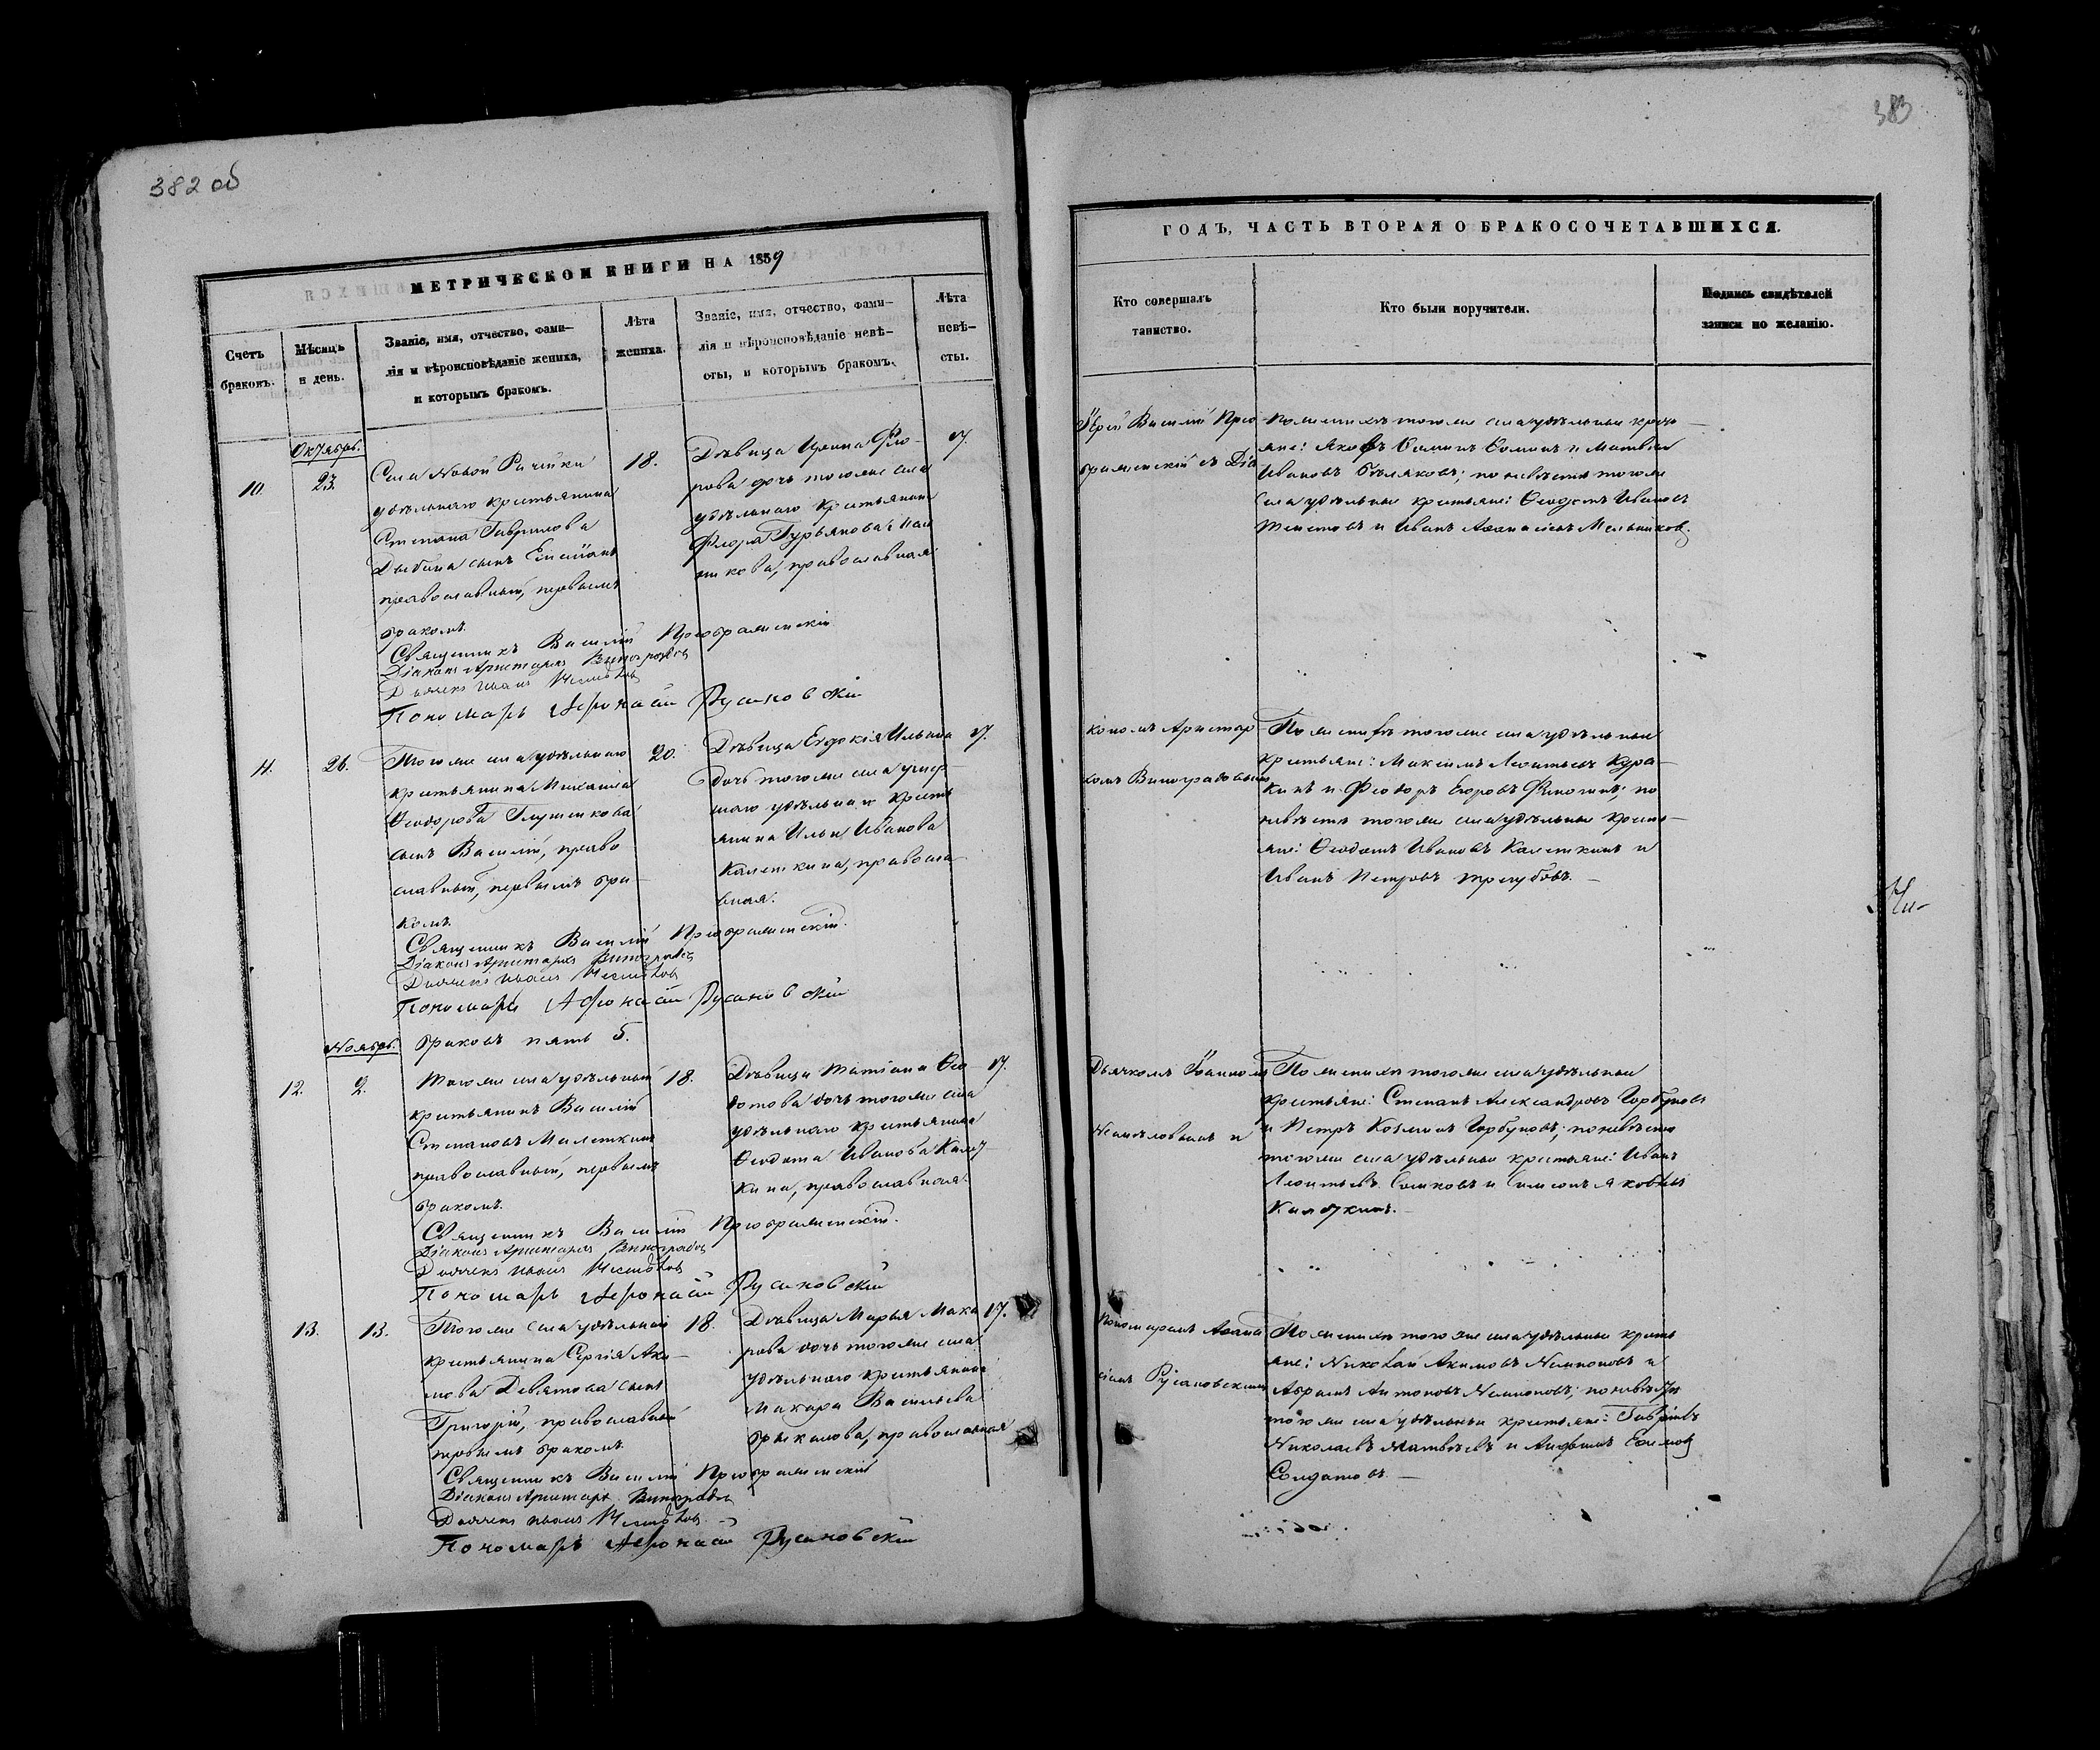 382 об
МЕТРИЧЕСКОЙ КНИГИ НА 1859
Счетъ браковъ.
Мѣсяцъ и день.
Званіе, имя, отчество, фами-
лія и вѣроисповѣданіе жениха,
и которымъ бракомъ.
Лѣта
жениха.
Званіе, имя, отчество, фами-
лія и вѣроисповѣданіе невѣ-
сты, и которымъ бракомъ.
Лѣта
невѣ-
сты.
Октябрь.
10.
23.
Села Новой
удѣльнаго крестьянина
Степана Гаврилова
сынъ
православный, первымъ
бракомъ.
18.
Дѣвица Ирина Фло-
рова дочь тогоже села
удѣльнаго крестьянина
Флора Гурьянова
православная
17.
Священникъ Василій Преображенскій
Діаконъ Аристархъ Виноградовъ
Дьячекъ Иванъ
Пономарь Афонасій Русановскій
11.
26.
Тогоже села удѣльнаго
крестьянина Михаила
Ѳеодорова Глушенкова
сынъ Василій, право
славный, первымъ бра-
комъ.
20.
Дѣвица Евдокія Ильина
дочь тогоже села умер-
шаго удѣльнаго кресть
янина Ильи Иванова
православ
вная.
17.
Священникъ Василій Преображенскій.
Діаконъ Аристархъ Виноградовъ
Дьячекъ Иванъ
Пономарь Афонасій Русановскій
браковъ пять 5.
Ноябрь.
12.
2.
Тогоже села удѣльный
крестьянинъ Василій
Степановъ
православный, первымъ
бракомъ.
18.
Дѣвица Татіана Ѳео
дотова дочь тогоже села
удѣльнаго крестьянина
Ѳеодота Иванова
православная.
17.
Священникъ Василій Преображенскій.
Діаконъ Аристархъ Виноградовъ
Дьячекъ Иванъ
Пономарь Афонасій Русановскій
13.
13.
Тогоже села удѣльнаго
крестьянина Сергія Аки-
мова Девятова сынъ
Григорій, православный
первымъ бракомъ.
18.
Дѣвица Марья Мака
рова дочь тогоже села
удѣльнаго крестьянина
Макара Васильева
православная
17.
Священникъ Василій Преображенскій
Діаконъ Аристархъ Виноградовъ
Дьячекъ Иванъ
Пономарь Афонасій Русановскій
383
ГОДЪ, ЧАСТЬ ВТОРАЯ О БРАКОСОЧЕТАВШИХСЯ.
Кто совершалъ
таинство.
Кто были поручители.
Подпись свидѣтелей
записи по желанію.
Іерей Василій Прео
браженскій съ Діа
По женихѣ тогоже села удѣльные кресть-
яне: Яковъ Ѳоминъ Ѳоминъ и Матвѣй
Ивановъ Бѣляковъ; по невѣстѣ тогоже
села удѣльные крестьяне: Ѳеодотъ Ивановъ
и Иванъ Аѳанасьевъ Мельниковъ.
кономъ Аристар
хомъ Виноградовымъ
По женихѣ тогоже села удѣльные
крестьяне: Максимъ Леонтьевъ Кура-
кинъ и Ѳеодоръ Егоровъ по
невѣстѣ тогоже села удѣльные кресть-
яне: Ѳеодотъ Ивановъ и
Иванъ Петровъ Трегубовъ.
Дьячкомъ Іоанномъ
и
По женихѣ тогоже села удѣльные
крестьяне: Степанъ Александровъ Горбуновъ
и Петръ Козминъ Горбуновъ; по невѣстѣ
тогоже села удѣльные крестьяне: Иванъ
Леонтьевъ и Симеонъ Яковлевъ
Пономаремъ Аѳана
сіемъ Русановскимъ
По женихѣ тогоже села удѣльные кресть
яне: Николай Акимовъ и
Абрамъ Антоновъ по невѣстѣ
тогоже села удѣльные крестьяне: Гаврилъ
Николаевъ Матвѣевъ и Ефимовъ
Солдатовъ.